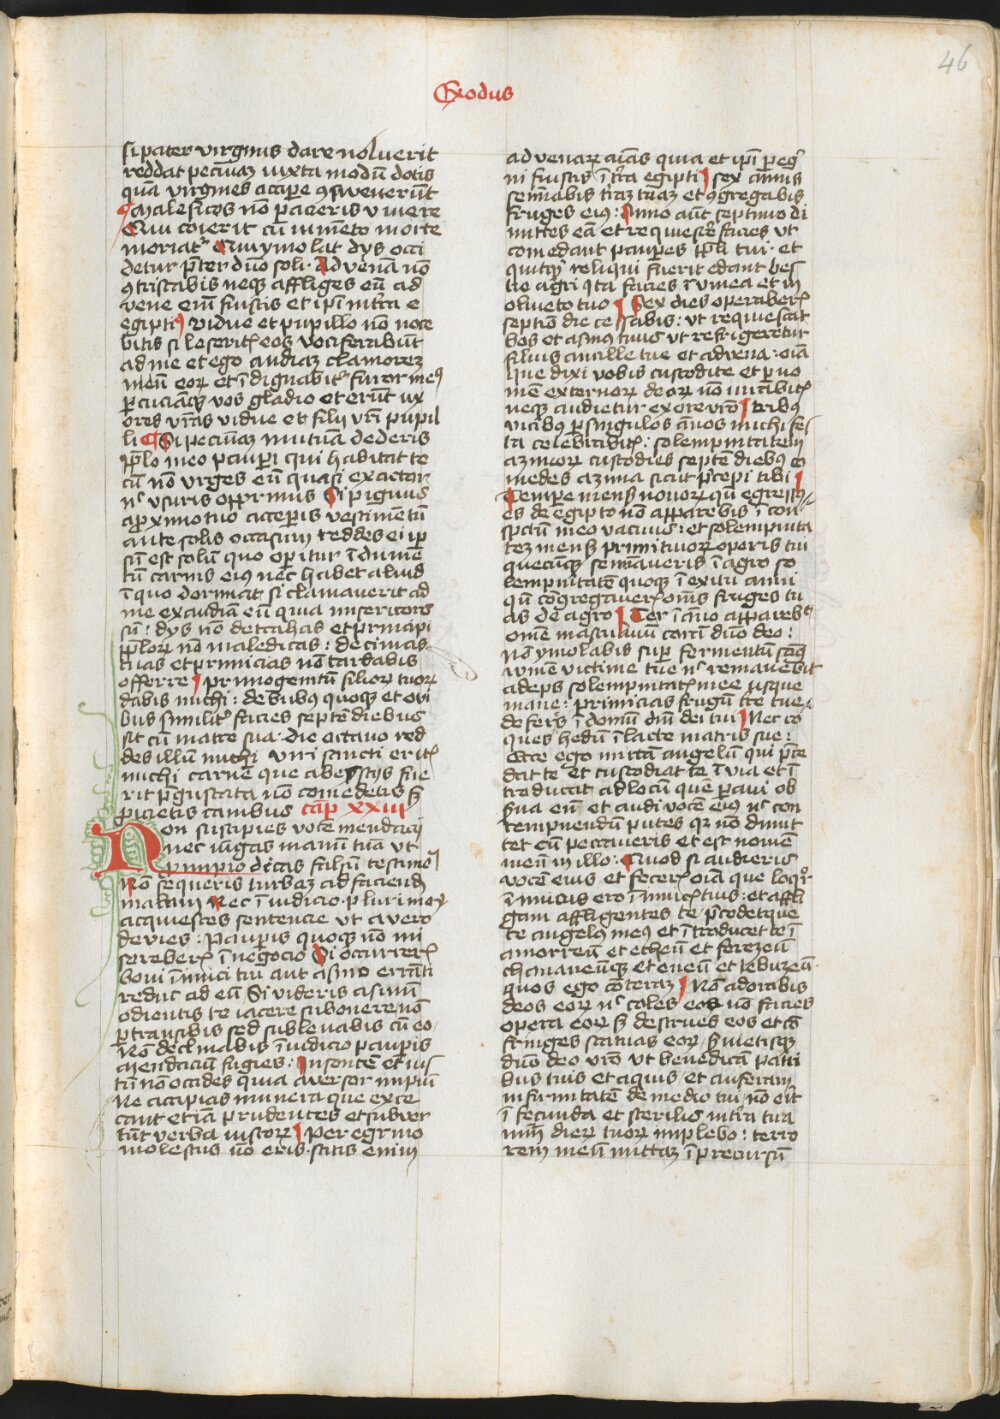 46
Exodus
si pater virginis dare noluerit
reddat pecuniaʒ iuxta modū dotis
quā virgines accipe ꝯsueverūt
Maleficos nō pacieris vivere
Qui coierit cū iumēto morte
moriat᷑ Qui ymolat dys occi
detur p̄ter dn̄o soli · Advenā nō
ꝯtristabis neqꝫ affliges eū ad
vene eniʒ fuistis et ip̄i in t̄ra e
egipti vidue et pupillo nō noce
bitis si leserit᷑ eos vociferabūt᷑
ad me et ego audiaʒ clamoreʒ
meū eoꝝ et īdignabit᷑ furor meꝰ
ꝑcuciāqꝫ vos gladio et erūt ux
ores vr̄as vidue et filij vr̄i pupil
li Si pecuniaʒ mutuā dederis
pp̄lo meo paupi qui habitat te
cū nō urges eū quasi exactor
nͨ usuris opprimis Si pignus
a ꝓximo tuo acceperis vestimentū
ante solis occasum reddes ei ip̄
sū est solū quo operitur īdumē
tū carnis eius nec habet aliud
ī quo dormiat si clamaverit ad
me exaudiā eū quia misericors
sū : dys nō detrahas et principi
pp̄loꝝ nō maledicas : decimas
tuas et primicias nō tardabis
offerre primogenitū filioꝝ tuoꝝ
dabis michi : de bubꝰ quoqꝫ et ovi
bus similit᷑ facies septē diebus
sit cū matre sua · die octavo red
des illum michi viri sancti erit᷑
michi carnē que a bestijs fue
rit p̄gustata nō comedetis sꝫ
ꝓicietis canibus cap̄ xxiii
Non suscipies vocē mendacij
nec iūgas manū tuā ut
p impio dicas falsū testimoī
Nō sequeris turbaʒ ad faciendꝫ
malum Nec ī iudicio plurimoꝝ
acquiesces sentencie ut a vero
devies : Pauperis quoqꝫ nō mi
sereber᷑ ī negocio Si occurrer᷑
bovi inimici tui aut asino errāti
reduc ad eū Si videris asinū
odientis te iacere sub onere nō
ptransibis sed sublevabis cū eo ·
Nō declinabis ī iudicio pauperis
Mendaciū fugies : Insontē et ius
tū nō occides quia aversor impiū
Ne accipias munera que exce
cant etiā prudentes et subver
tūt verba iustoꝝ Peregrino
molestus nō eris · scitis enim
advenaꝝ aīas quia et ip̄i peg̕
ni fuistis ī t̄ra egipti sex annis
seminabis t̄raʒ tuaʒ et ꝯgregabis
fruges eiꝰ : Anno aūt septimo di
mittes eā et requiescere facies ut
comedant pauperes pp̄li tui · et
quitqꝫ reliqui fuerit edant bes
tie agri ita facies ī vinea et in
oliveto tuo Sex dies operaber᷑
septīo die cessabis : ut requiescat
bos et asinus tuus ut refrigeretur
filius ancille tue et advena : oīa
que dixi vobis custodite et p no
mē externoꝝ deoꝝ nō iurabit᷑
neqꝫ audietur ex ore vr̄o tribꝰ
vicibꝰ p singulos annos michi fes
ta celebrabit᷑ : solempnitatem
azimoꝝ custodies septē diebꝰ co
medes azima sicut p̄cepi tibi
Tempore mensꝫ novoꝝ qn̄ egressꝰ
es de egipto nō apparebis ī con
spctū meo vacuus : et solempnita
teʒ mensꝫ primitivoꝝ operis tui
quecūqꝫ seminaveris ī agro so
lempnitatē quoqꝫ ī exitu anni
qn̄ cōgregaver᷑ om̄s fruges tu
as de agro Ter ī āno apparebit
omē masculinū corā dn̄o deo :
Nō ymolabis sup fermentū sāg
winem victime tue nͨ remanebit
adeps solempnitat᷑ mee usque
mane : primicias frugū t̄re tue
deferꝫ ī domū dn̄i dei tui Nec co
ques hedū ī lacte matris sue :
Ecce ego mittā angelū qui p̄ce
dat te et custodiat te ī via et ī
traducat ad locū quē paravi ob
s̄va eū et audi vocē eiꝰ nͨ con
tempnendū putes qꝛ nō dimit
tet cū peccaveris et est nomē
meū in illo : Quod si audieris
vocē eius et fecer᷑ oīa que loqꝰr
īimicus ero īimicꝫ tuis : et affli
gam affligentes te p̄cedetque
te angelꝰ meꝰ et ītroducet te ī
amorreū et etheū et ferezeū
chananeūqꝫ et eveū et iebuzeū ·
quos ego cōteraʒ Nō adorabis
deos eoꝝ nͨ coles eos nō facies
opera eoꝝ sꝫ destrues eos et cō
fringes statuas eoꝝ s̄vietisqꝫ
dn̄o deo vr̄o ut benedicā pani
bus tuis et aquis et auferam
infirmitatē de medio tui · nō erit
ī fecunda et sterilis in t̄ra tua
nūꝫ dieꝝ tuoꝝ implebo : terro
rem meū mittaʒ ī precursū